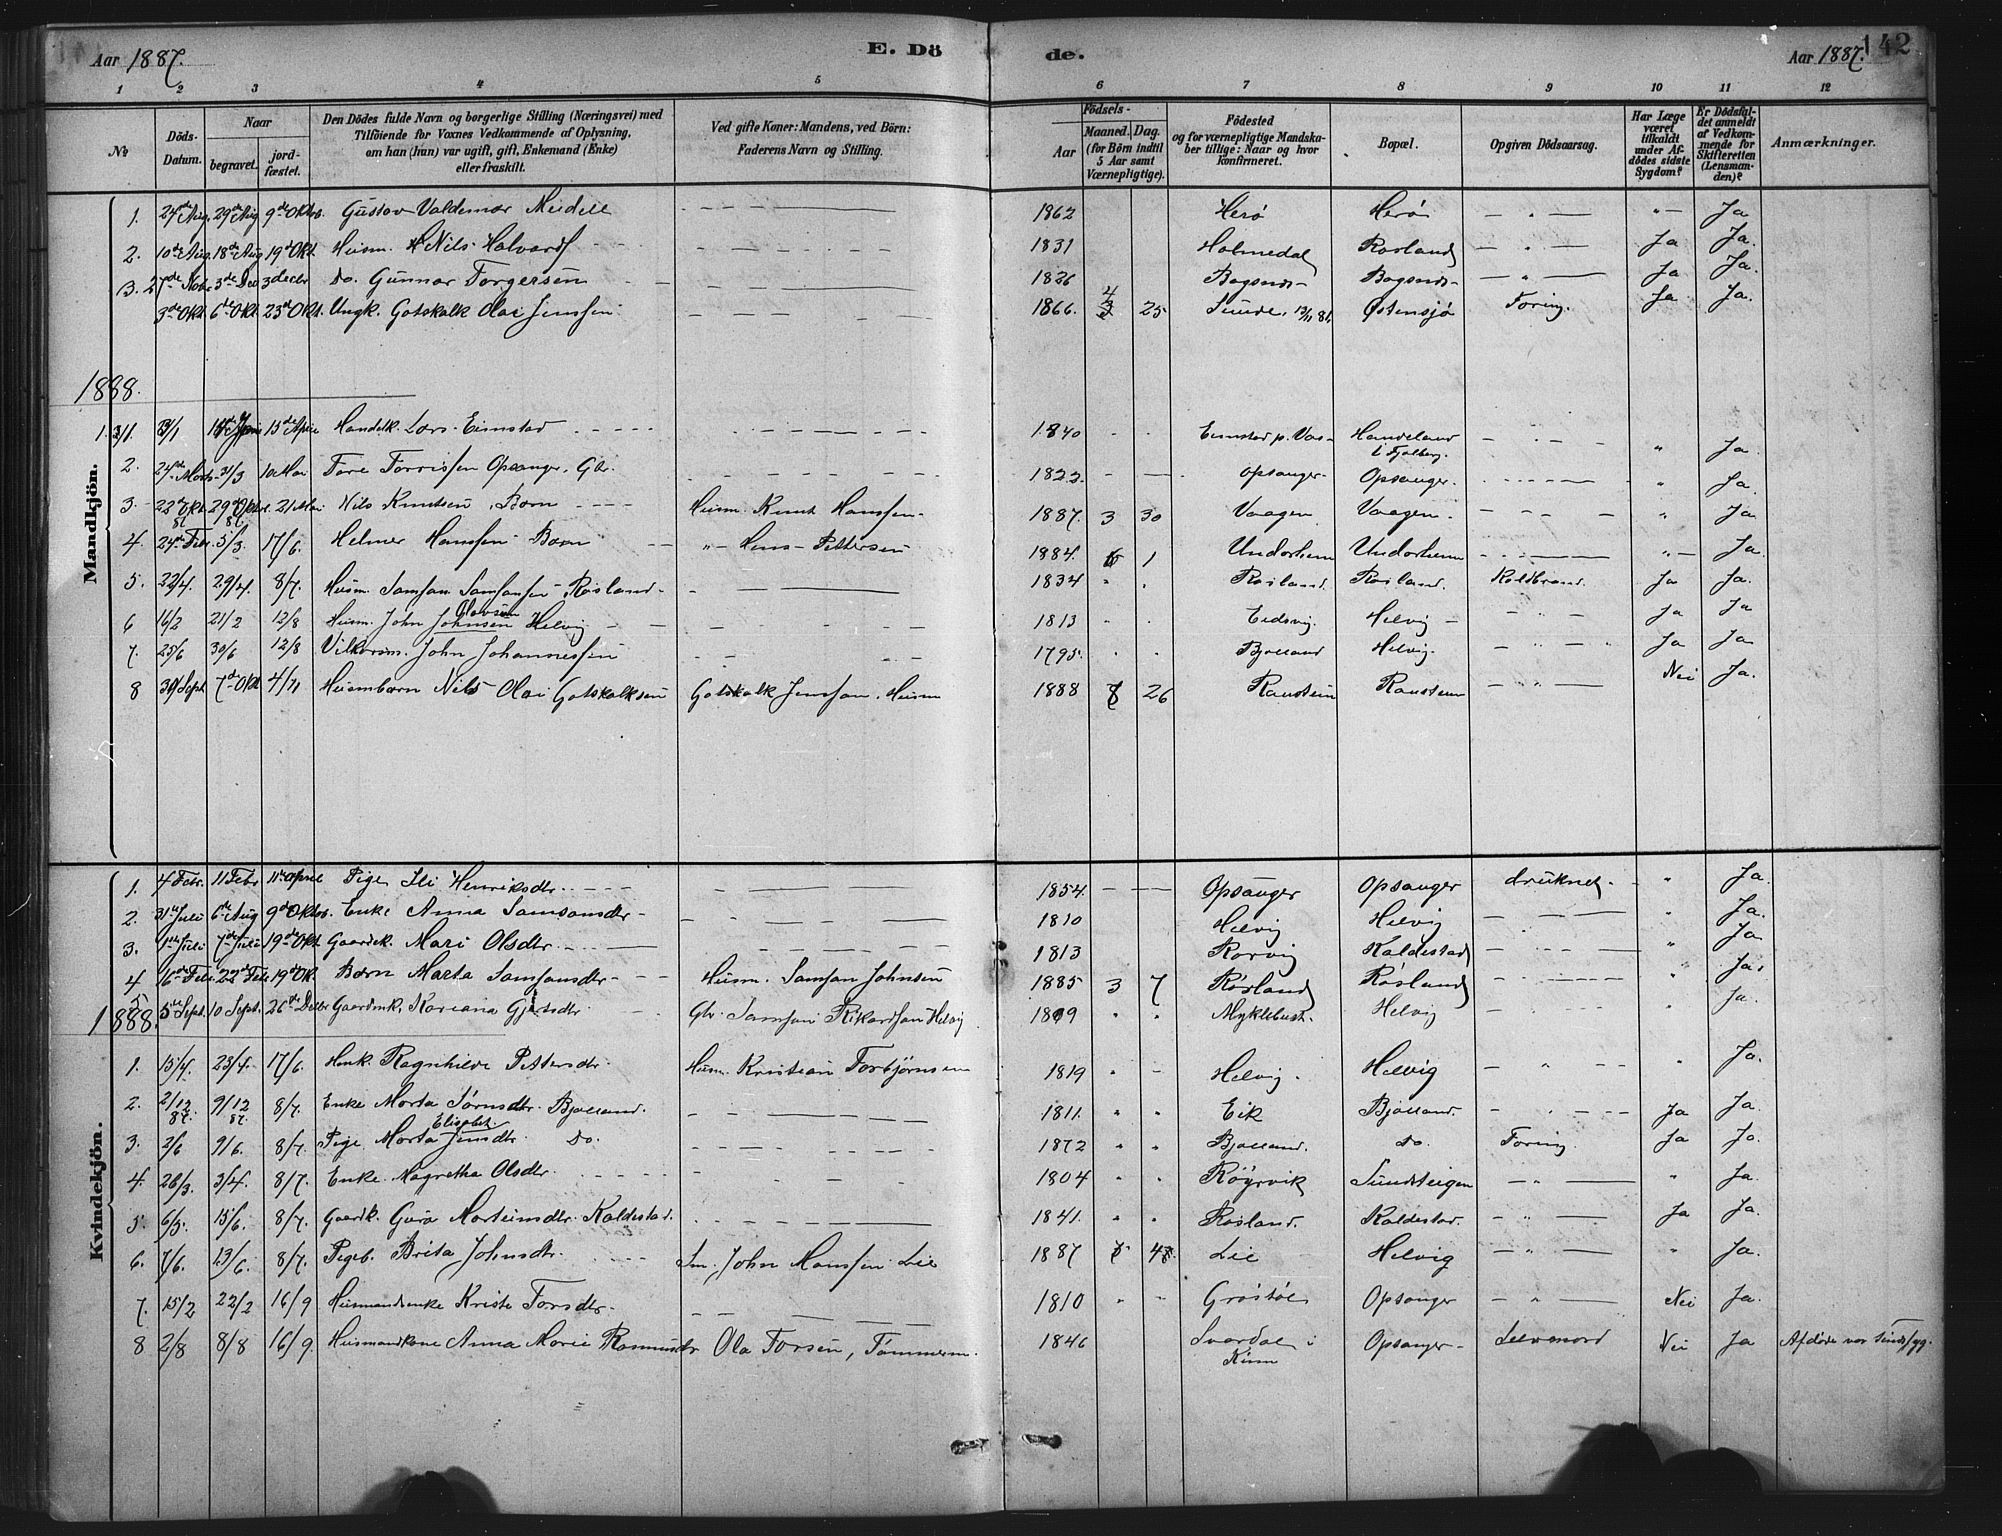 Aar 1887. E. Dö de. Aar 1887. 142
1 2 3 4 5 6 7 8 9 10 11 12
№ Döds-Datum. Naar begravet. jordfæstet. Den Dödes fulde Navn og borgerlige Stilling (Næringsvei) med Tilföiende for Voxnes Vedkommende af Oplysning, om han (hun) var ugift, gift, Enkemand (Enke) eller fraskilt. Ved gifte Koner: Mandens, ved Börn: Faderens Navn og Stilling. Födsels- Aar Maaned. Dag. (for Börn indtil 5 Aar samt Værnepligtige). Födested og for værnepligtige Mandskaber tillige: Naar og hvor konfirmeret. Bopæl. Opgiven Dödsaarsag. Har Læge været tilkaldt under Afdödes sidste Sygdom? Er Dödsfaldet anmeldt af Vedkommende for Skifteretten (Lensmanden)? Anmærkninger.
Mandkjön.
1. 24de Aug. 29de Aug 9de Oktob. Gustav Valdemar Meidell 1862 Herö Herö Ja
2. 10de Aug. 18de Aug 19d Okt. Husm. Nils Halvards 1831 Holmedal Rosland Ja Ja.
3. 27de Nobr 3de Des 3 decbr Do. Gunnar Torgersen 1826 Bogsnes Bogsnes Ja Ja.
3de Okt. 6de Okt. 23d Okt. Ungk. Gotskalk Olai Jenssen 1866. 4 25 Sunde, Østensjø Tæring. Ja Ja.
1888.
1. 3/1 15de April Handelk. Lars Eimstad 1840 Eimstad p. Vos Handeland i Fjelberg. " Ja.
2. 24de Marts 31/3 10 Mai Tore Torrissen Opsanger, Gbr. 1822 Opsanger Opsanger. " Ja.
3 22d Okt. 87 29d Oktbr. 87. 21 Mai Nils Knutsen, Barn Husm. Knut Hanssen 1887. 3 30 Vaagen Vaagen " Ja
4. 24de Febr. 5/3 17/6 Helmer Hanssen Barn " Hans Pettersen 1884. 6 1 Undarheim Undarheim " Ja.
5. 22/4. 29/4. 8/7. Husm. Samson Samsonsen Rosland 1834 Rosland. Rosland. Koldbrand. Ja Ja.
6 16/2 21/2 12/8 Husm. John Johnsen Olavsen Helvig 1813 Eidsvig. Helvig Ja Ja
7. 25/6 30/6 12/8 Vilkårsm. John Johannessen 1795. Bjelland Helvig. Ja Ja
8 30 Sept 7de Okt 4/11 Husmbarn Nils Olai Gotskalksen Gotskalk Jenssen, Husm 1888 8 26 Ranstein Ranstein Nei Ja.
Kvindekjön.
1. 4 Febr. 11 Febr 11te april Pige Ili Henriksdtr. 1854. Opsanger Opsanger druknet. " Ja.
2. 31te Juli 6te Aug 9d Oktob. Enke Anna Samsonsdtr 1810 Helvig Helvig " Ja.
3. 1ste Juli 7de Juli 19de Okt. Gaardk. Mari Olsdtr. 1813 Rorvig Kaldestad " Ja
4 16de Febr. 22d Febr 19d Okt. Barn Marta Samsonsdtr Husm. Samson Johnsen 1885 3 7 Røsland Røsland " Ja.
5 5te Sept. 10 Sept. 26de Decbr Gaardmk. Koriana Gjertsdtr Gbr. Samson Rikardsen Helvig 1809 " " Myklebust. Helvig " Ja.
1888.
1. 15/4. 23/4. 17/6. Husk. Ragnhilde Pettersdtr. Husm. Kristian Torbjörnsen 1819 Helvig. Helvig " Ja.
2. 2/12 87. 9/12 87. 8/7. Enke Marta Törnsdtr. Bjelland. 1811. " " Eik Bjelland. Ja Ja.
3. 2/6 9/6. 8/7. Pige Marta Elisabet Jensdtr. Do. 1872 " " Bjelland. Do. Tæring. Ja Ja.
4. 26/3. 3/4. 8/7. Enke. Magretha Olsdtr. 1804 " " Röyrvik Sundsteigen " Ja.
5. 6/5. 15/6. 8/7. Gaardk. Guro Morteinsdtr. Kaldestad. 1841. " " Rosland. Kaldestad. Ja Ja.
6. 7/6. 13/6. 8/7. Pigeb. Brita Johnsdtr. Sm. John Monssen Lie 1887 Lie Helvig " Ja.
7. 15/2 22/2 16/9 Husmandsenke Kristi Torsdtr. 1810 " " Graatöe Opsanger Nei Ja.
8 2/8 8/8 16/9 Husmandkone Anna Marie Rasmusdtr Ola Torsen, Tømmerm. 1846 Svardal i Kinn Opsanger Selvmord Nei Ja Afdøde var sindssyg.